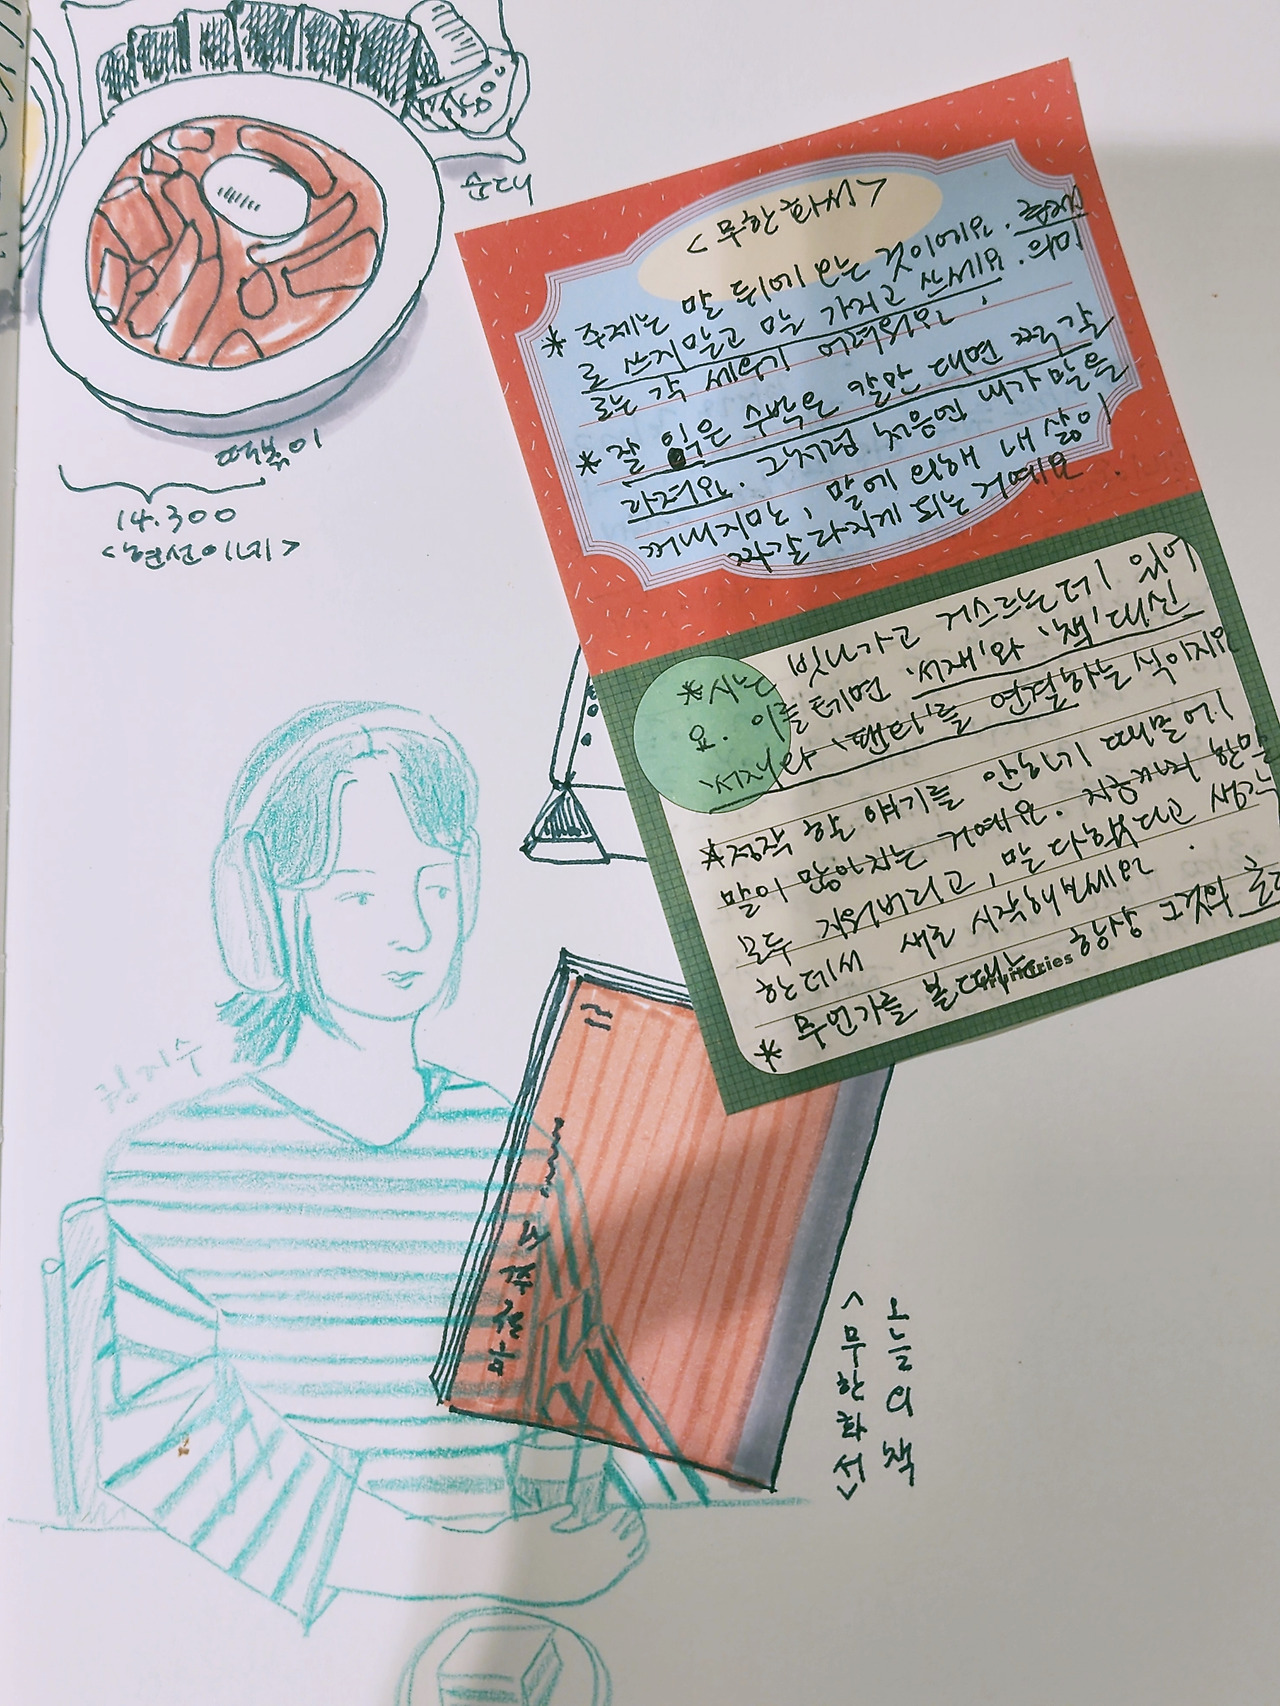 순대
떡볶이
14.300
<현선이네>
<무한화서>
* 주제는 말 뒤에 오는 것이에요. 주제
로 쓰지말고 말 가지고 쓰세요. 의미
로는 각 세우기 어려워요.
* 잘 익은 수박은 칼만 대면 쩍 갈
라져요. 그처럼 처음엔 내가 말을
꺼내지만, 말에 의해 내 삶이
짜갈라지게 되는 거예요.
*시는 빗나가고 거스르는데 있어
요. 이를테면 '서재'와 '책' 대신
'서재'와 '팬티'를 연결하는 식이지요
*정작 할 얘기를 안하기 때문에
말이 많아지는 거예요. 지금까지 한말
모두 지워버리고, 말 다했다고 생각
한데서 새로 시작해보세요.
* 무언가를 볼 때는 항상 그것의
지수
오늘의 책
<무한화서>